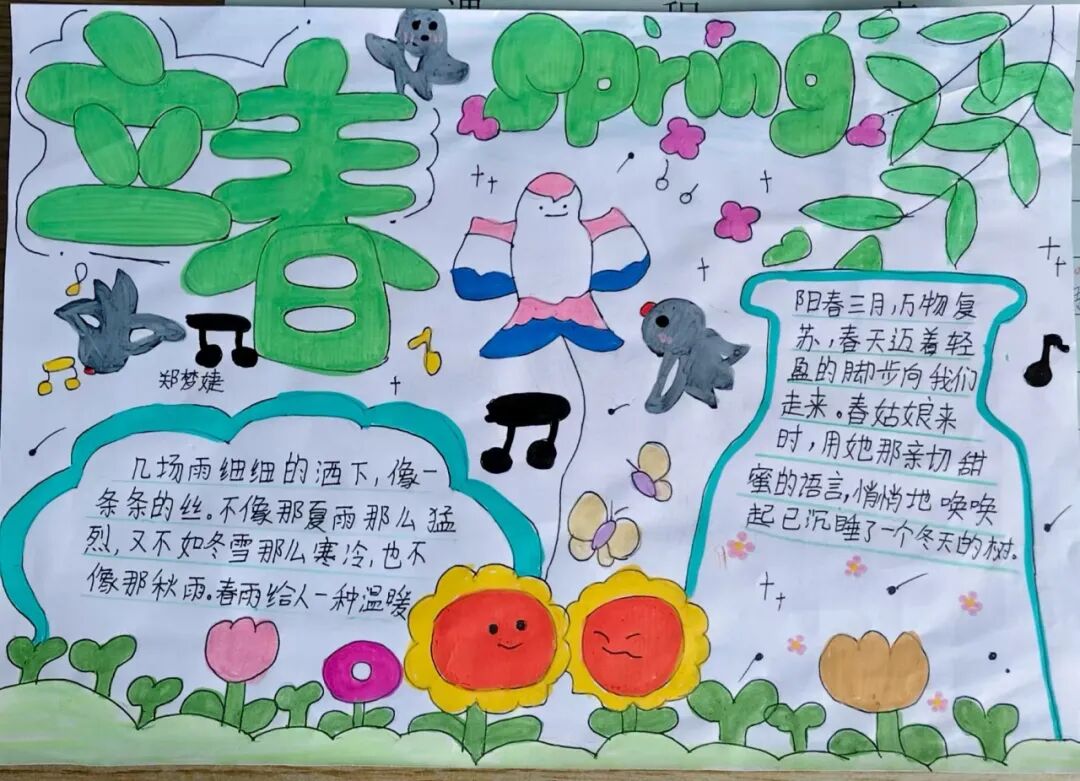 立春
spring
郑梦婕
几场雨细细的洒下,像一
条条的丝。不像那夏雨那么猛
烈,又不如冬雪那么寒冷,也不
像那秋雨。春雨给人一种温暖
阳春三月,万物复
苏,春天迈着轻
盈的脚步向我们
走来。春姑娘来
时,用她那亲切甜
蜜的语言,悄悄地唤唤
起已沉睡了一个冬天的树。